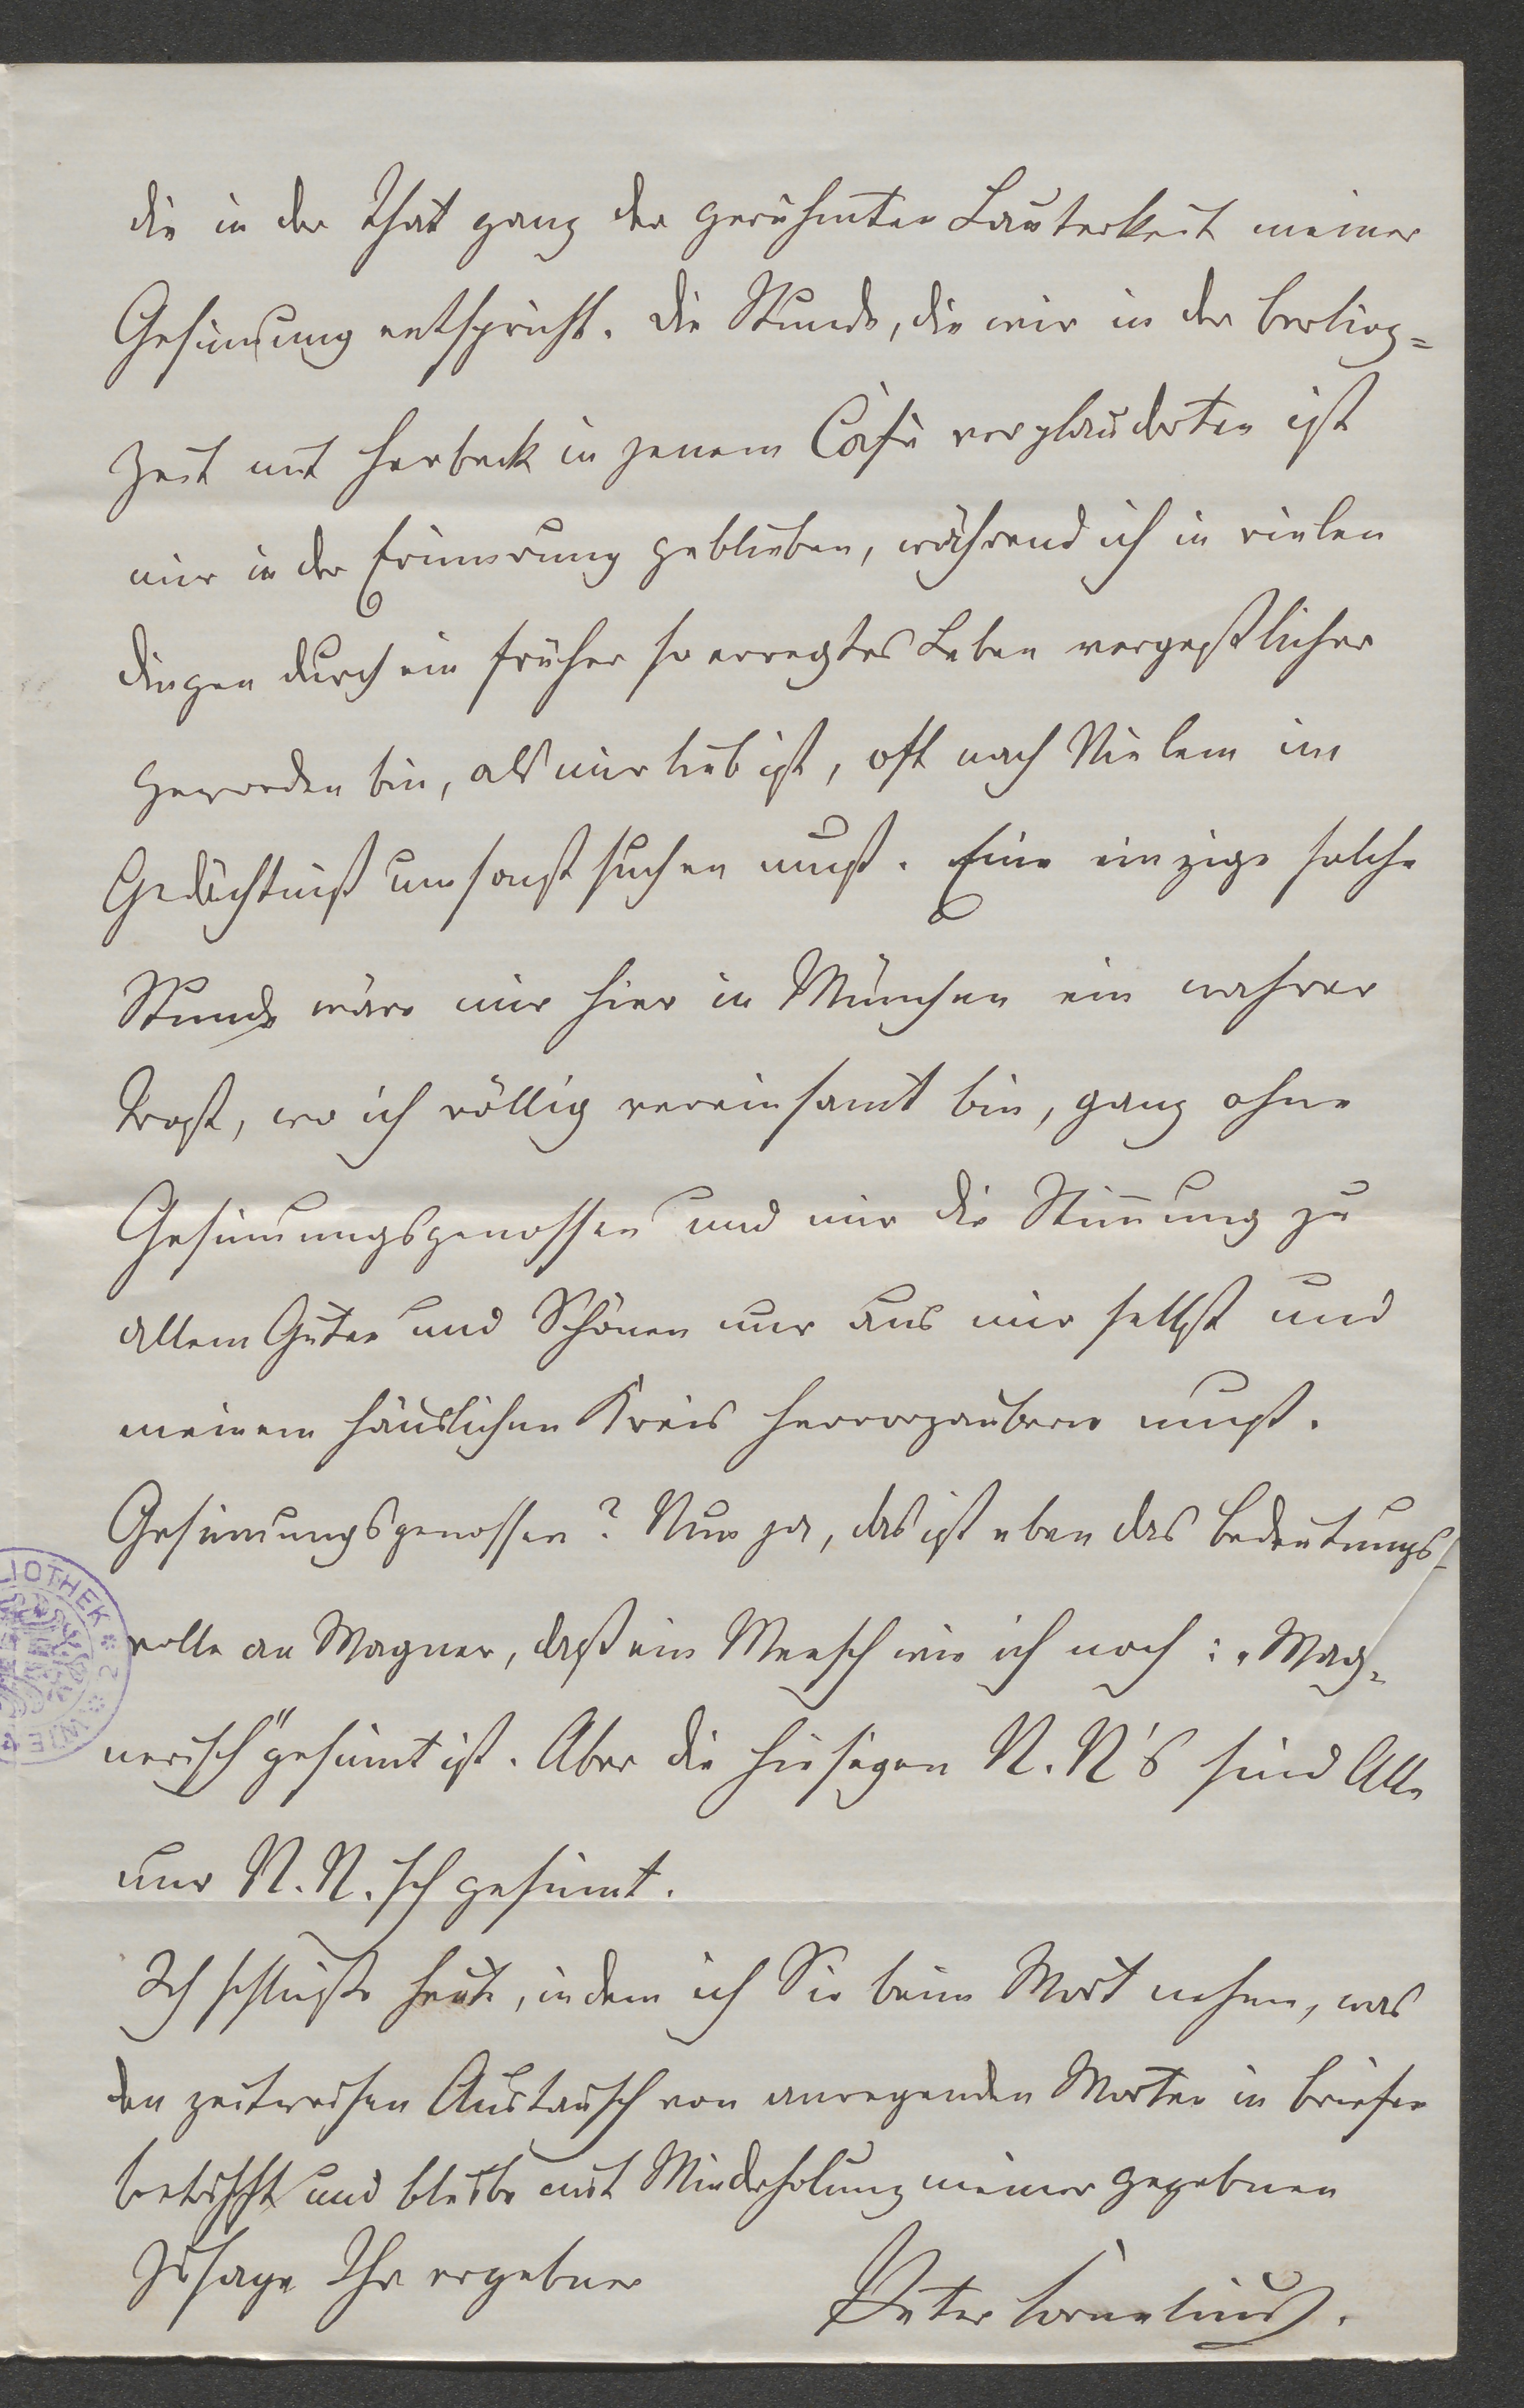 die in der That ganz der gerühmten Lauterkeit meiner
Gesinnung entspricht. Die Stunde, die wir in der Berlioz=
zeit mit Herbeck in jenem Café verplauderten ist
mir in der Erinnerung geblieben, während ich in vielen
Dingen durch ein früher so erregtes Leben vergeßlicher
geworden bin, als mir lieb ist, oft nach Vielem im
Gedächtniß umsonst suchen muß. Eine einzige solche
Stunde wäre mir hier in München ein wahrer
Trost, wo ich völlig vereinsamt bin, ganz ohne
Gesinnungsgenossen und mir die Stimmung zu
allem Guten und Schönen nur aus mir selbst und
meinem häuslichen Kreis hervorzaubern muß.
Gesinnungsgenossen? Nun ja, das ist eben das Bedeutungs-
volle an Wagner, daß ein Mensch wie ich noch: „Wag-
nerisch" gesinnt ist. Aber die hiesigen N. N's sind Alle
nur N. N.sch gesinnt.
Ich schließe heute, indem ich Sie beim Wort nehme, was
den zeitweisen Austausch von anregenden Worten in Briefen
betrifft und bleibe mit Wiederholung meiner gegebnen
Zusage Ihr ergebner
Peter Cornelius.
LIOTHEK * 2 * WIE